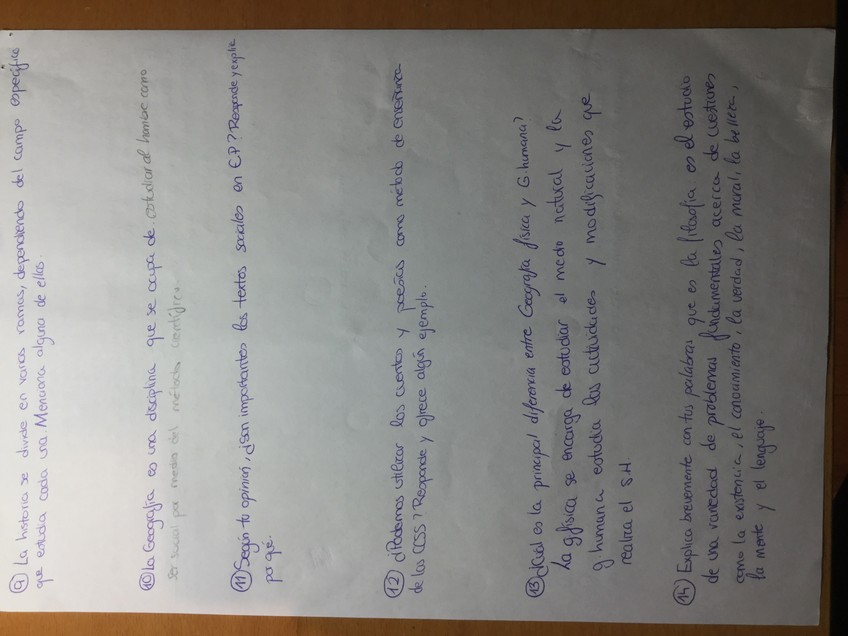 9) La historia se divide en varias ramas, dependiendo del campo específico
que estudia cada una. Menciona alguna de ellas.
10) La Geografía es una disciplina que se ocupa de estudiar al hombre como
ser social por medio del método científico.
11) Según tu opinión, ¿son importantes los textos sociales en E.P? Responde y explica
por qué.
12) ¿Podemos utilizar los cuentos y poesías como método de enseñanza
de las CCSS? Responde y ofrece algún ejemplo.
13) ¿Cuál es la principal diferencia entre Geografía física y G. humana?
La g física se encarga de estudiar el medio natural y la
g humana estudia las actividades y modificaciones que
realiza el S.H.
14) Explica brevemente con tus palabras que es la filosofía es el estudio
de una variedad de problemas fundamentales acerca de cuestiones
como la existencia, el conocimiento, la verdad, la moral, la belleza,
la mente y el lenguaje.